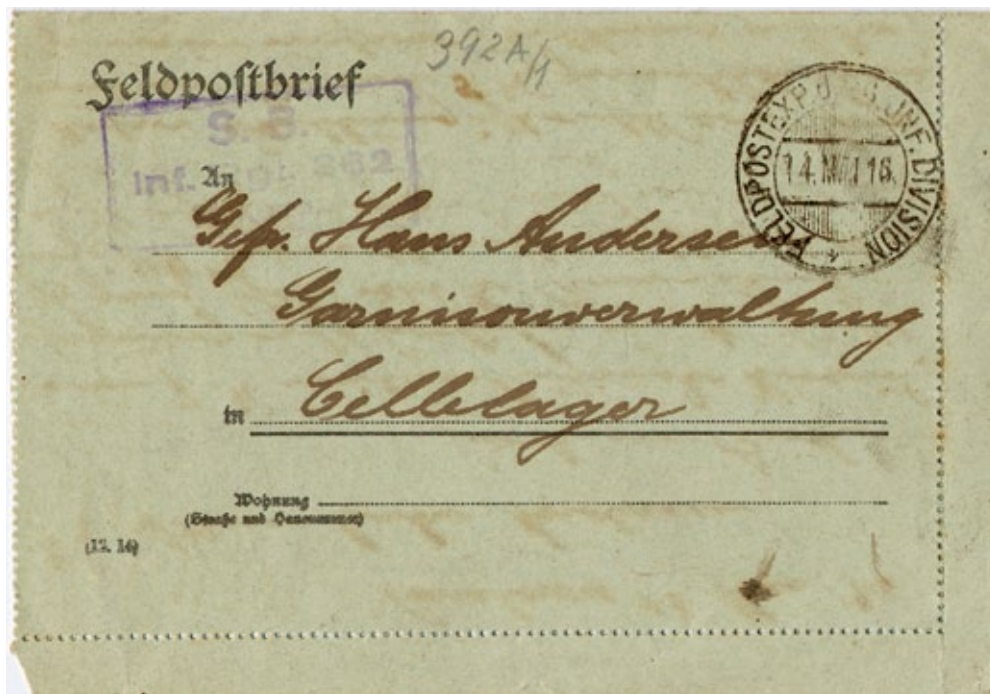 392A/1
Feldpostbrief
S. B.
Inf. Rgt. 362
FELDPOSTEXP. D. INF. DIVISION
14. MAI 16.
An
Gefr. Hans Andersen
Garnisonverwaltung
in Cellelager
Wohnung
(Straße und Hausnummer)
(12. 14)